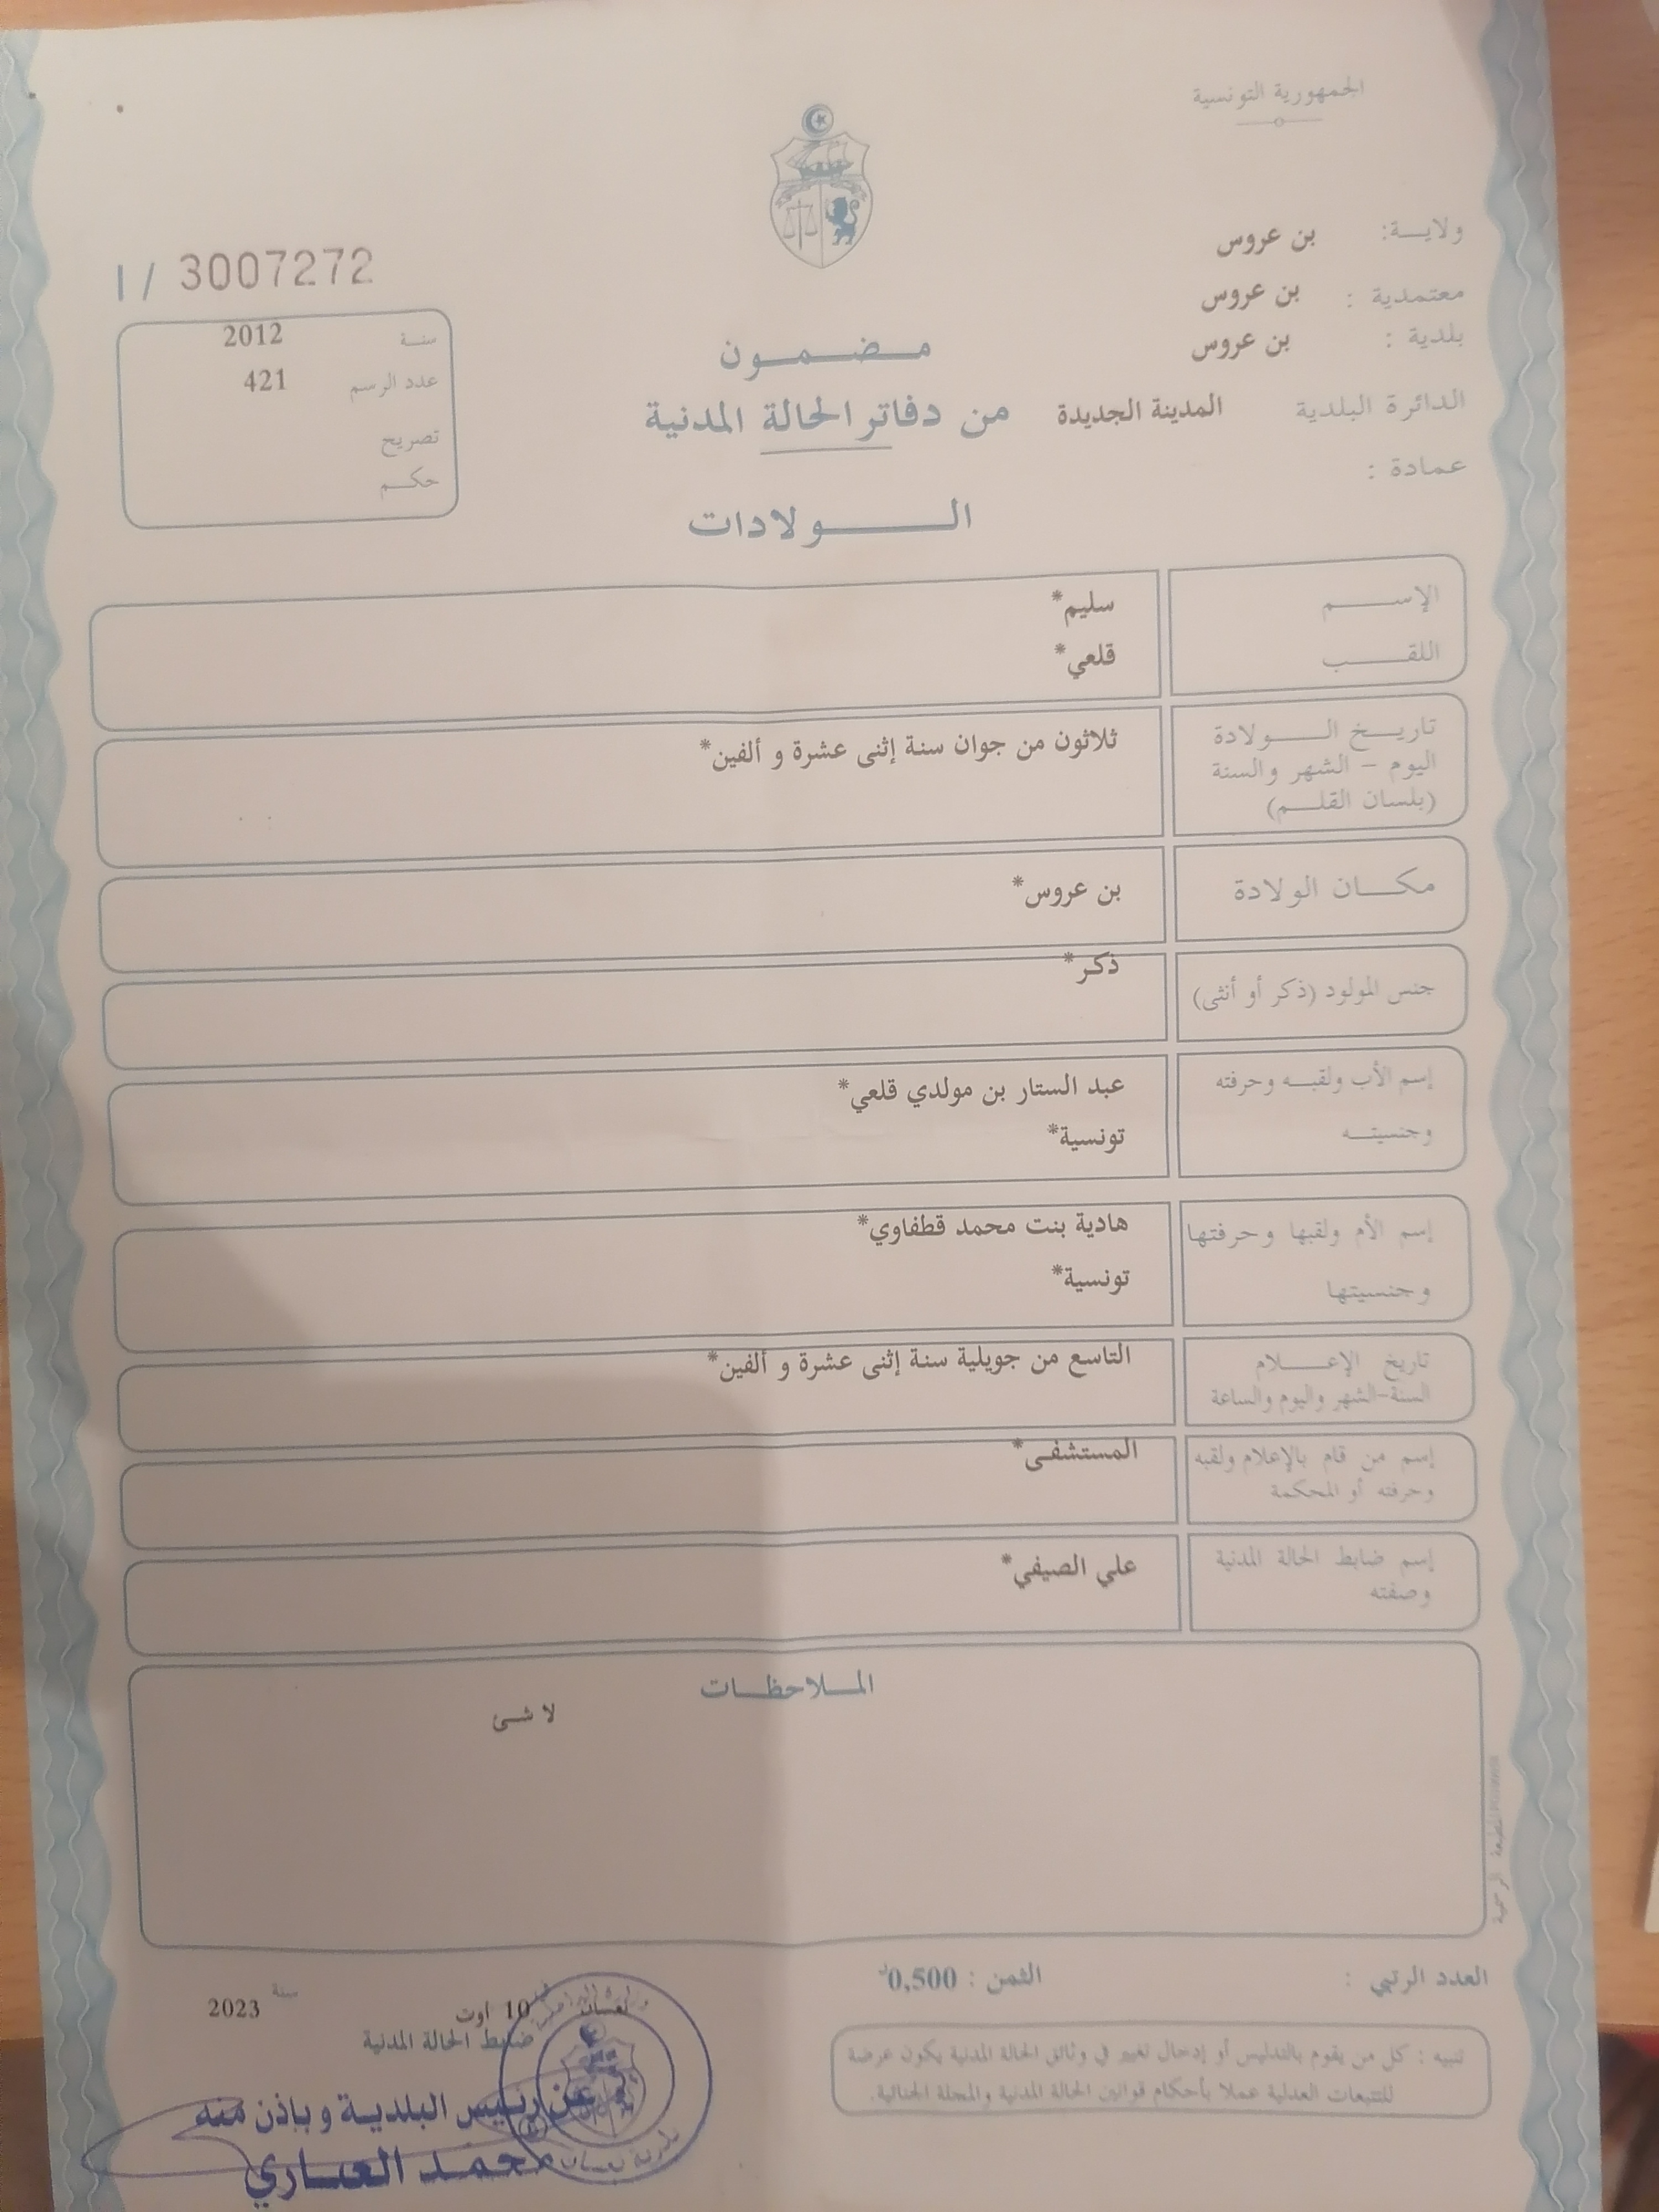 الجمهورية التونسية
ولايـــة: بن عروس
معتمدية : بن عروس
بلدية : بن عروس
الدائرة البلدية المدينة الجديدة
عمادة :
مـضـمـون
من دفاتر الحالة المدنية
الـــولادات
I / 3007272
سنـة 2012
عدد الرسم 421
تصريح
حكـم
الإســـم سليم*
اللقـــب قلعي*
تاريـخ الـــولادة ثلاثون من جوان سنة إثنى عشرة و ألفين*
اليوم – الشهر والسنة
(بلسان القلـــم)
مكـــان الولادة بن عروس*
جنس المولود (ذكر أو أنثى) ذكر*
إسم الأب ولقبـه وحرفته عبد الستار بن مولدي قلعي*
وجنسيتـه تونسية*
إسم الأم ولقبها وحرفتها هادية بنت محمد قطفاوي*
وجنسيتها تونسية*
تاريخ الإعـــلام التاسع من جويلية سنة إثنى عشرة و ألفين*
السنة-الشهر واليوم والساعة
إسم من قام بالإعلام ولقبه المستشفى*
وحرفته أو المحكمة
إسم ضابط الحالة المدنية علي الصيفي*
وصفته
المـلاحظـات
لا شئ
المطبعة الرسمية
العدد الرتبي :
الثمن : 0,500د
نعسان 10 اوت سنة 2023
ضابط الحالة المدنية
تنبيه : كل من يقوم بالتدليس أو إدخال تغيير في وثائق الحالة المدنية يكون عرضة
للتتبعات العدلية عملا بأحكام قوانين الحالة المدنية والمجلة الجنائية.
عن رئيس البلديـة وباذن منه
محمـد العـاري
بلدية نعسان